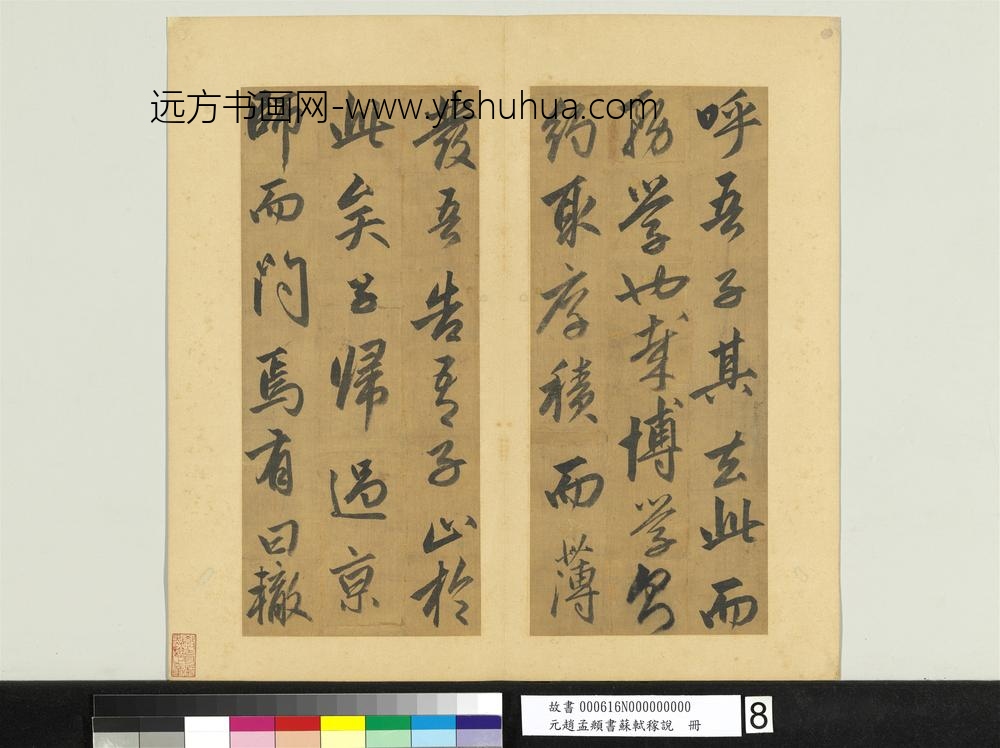 远方书画网-www.yfshuhua.com
呼吾子其去此而
務學也哉博學
約取厚積而薄
發吾告吾子止於
此矣子歸過京
師而問焉有曰轍
故書 000616N000000000
元趙孟頫書蘇軾稼說 冊
8